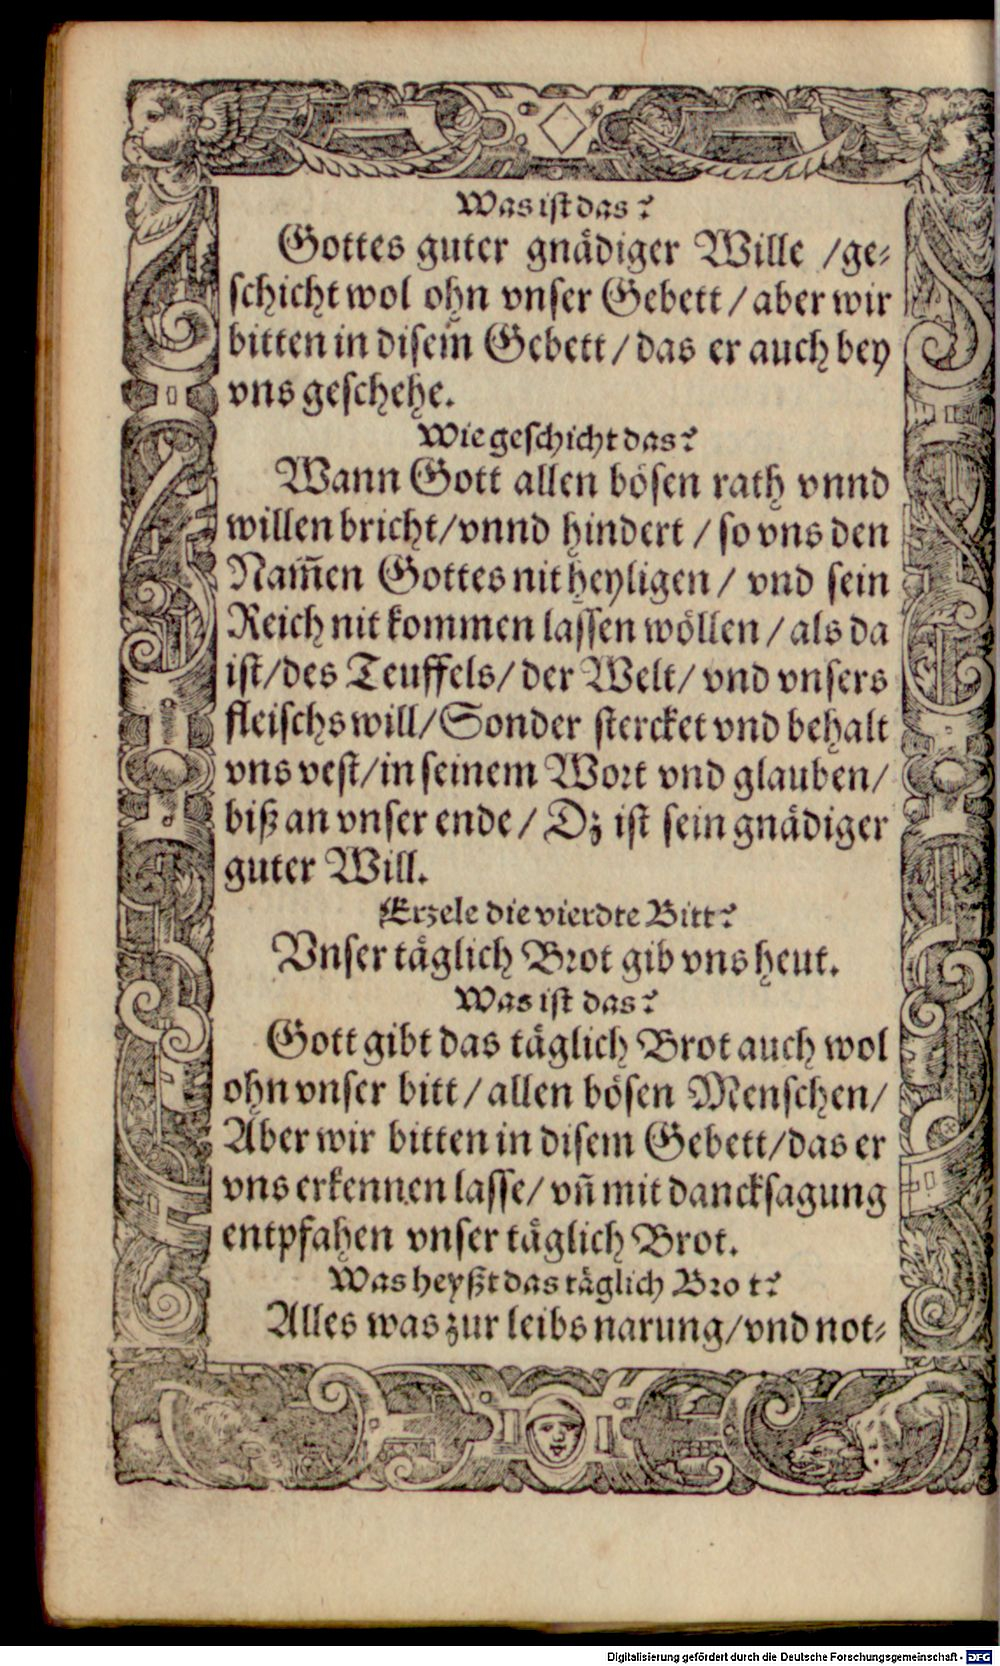 Was ist das?
Gottes guter gnädiger Wille /ge-
schicht wol ohn vnser Gebett / aber wir
bitten in disem Gebett / das er auch bey
vns geschehe.
Wie geschicht das?
Wann Gott allen bösen rath vnnd
willen bricht/vnnd hindert / so vns den
Nam̃en Gottes nit heyligen / vnd sein
Reich nit kommen lassen wöllen / als da
ist/des Teuffels/ der Welt/ vnd vnsers
fleischs will/Sonder stercket vnd behalt
vns vest/in seinem Wort vnd glauben/
biß an vnser ende / Dz ist sein gnädiger
guter Will.
Erzele die vierdte Bitt?
Vnser täglich Brot gib vns heut.
Was ist das?
Gott gibt das täglich Brot auch wol
ohn vnser bitt / allen bösen Menschen/
Aber wir bitten in disem Gebett/das er
vns erkennen lasse/ vñ mit dancksagung
entpfahen vnser täglich Brot.
Was heyßt das täglich Bro t?
Alles was zur leibs narung/vnd not-
Digitalisierung gefördert durch die Deutsche Forschungsgemeinschaft - DFG